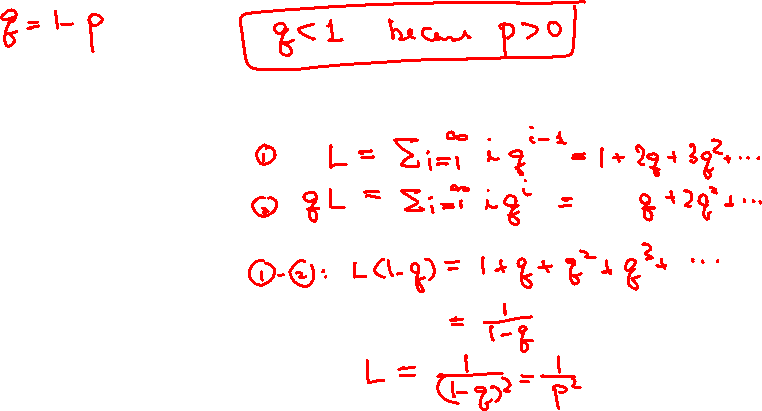 q = 1 - p
q < 1 because p > 0
① L = ∑i=1^∞ i q^{i-1} = 1 + 2q + 3q^2 + ...
② qL = ∑i=1^∞ i q^i = q + 2q^2 + ...
① - ②: L(1-q) = 1 + q + q^2 + q^3 + ...
= 1/(1-q)
L = 1/(1-q)^2 = 1/p^2